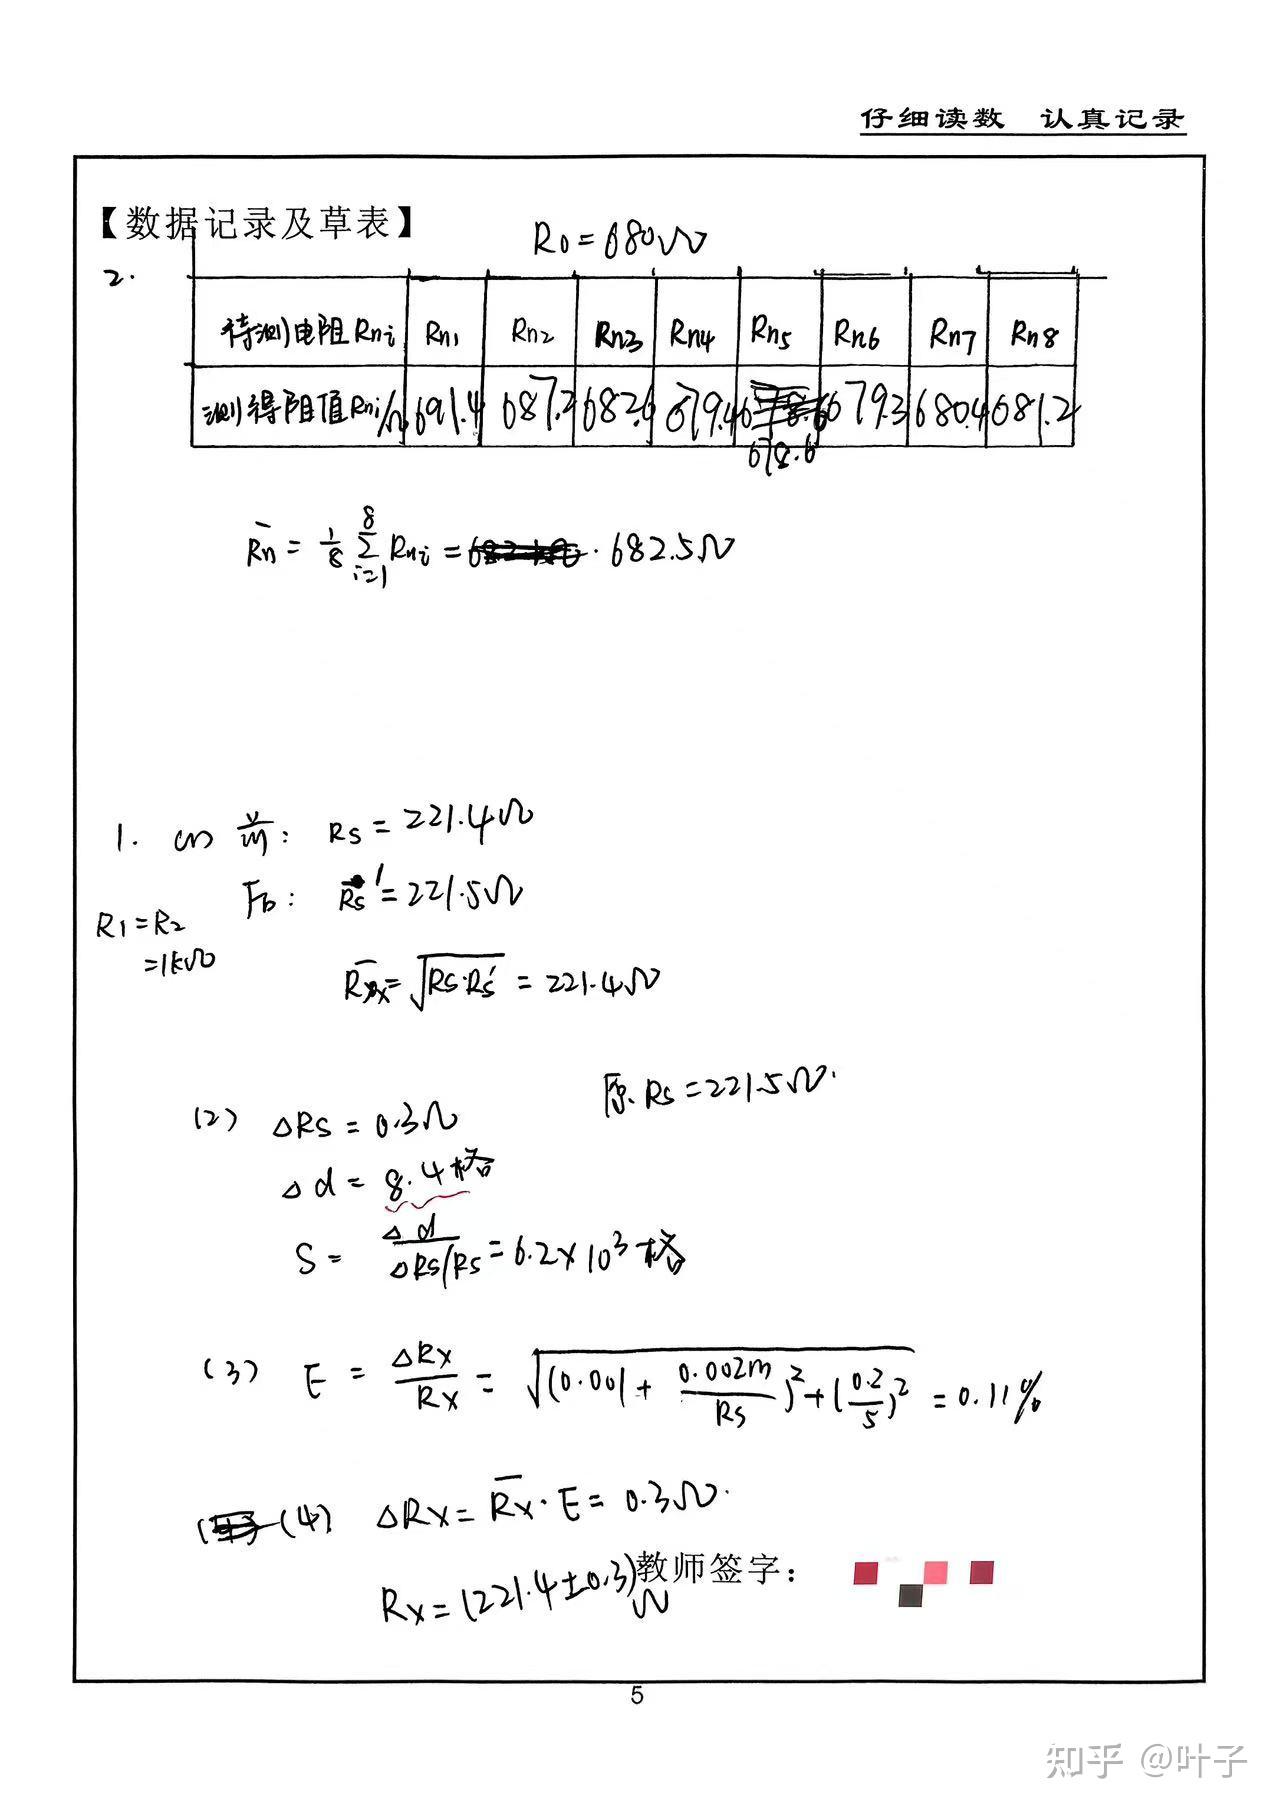 仔细读数 认真记录
【数据记录及草表】
R0=680Ω
2.
待测电阻Rni Rn1 Rn2 Rn3 Rn4 Rn5 Rn6 Rn7 Rn8
测得阻值Rni/Ω 691.4 687.2 682.6 679.4 678.6 679.3 680.4 681.2
R̄n = 1/8 Σ(i=1→8) Rni = 682.5Ω
1. (1) 前: Rs=221.4Ω
后: Rs'=221.5Ω
R1=R2
=1kΩ
R̄x=√(Rs·Rs') = 221.4Ω
原Rs=221.5Ω.
(2) ΔRs = 0.3Ω
Δd = 8.4格
S = Δd/(ΔRs/Rs) = 6.2×10³格
(3) E = ΔRx/Rx = √((0.001+0.002m/Rs)²+(0.2/S)²) = 0.11%
(4) ΔRx=R̄x·E=0.3Ω.
教师签字:
Rx=(221.4±0.3)Ω
5
知乎 @叶子